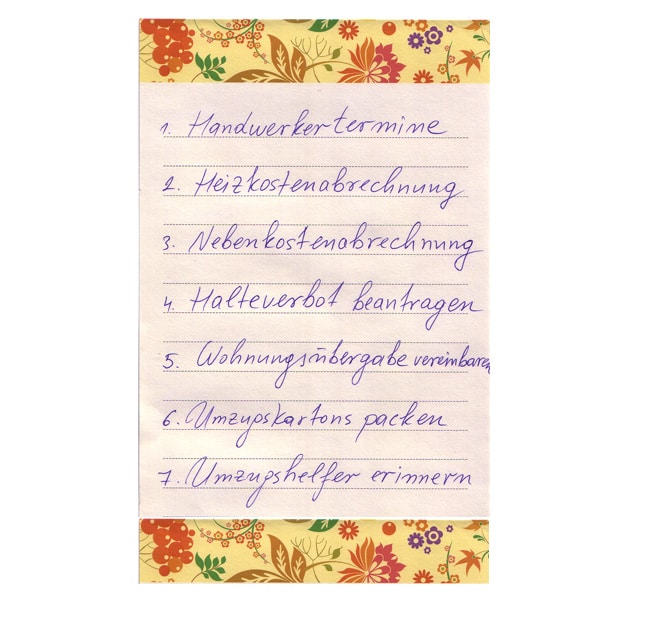 1. Handwerkertermine
2. Heizkostenabrechnung
3. Nebenkostenabrechnung
4. Halteverbot beantragen
5. Wohnungsübergabe vereinbaren
6. Umzugskartons packen
7. Umzugshelfer erinnern